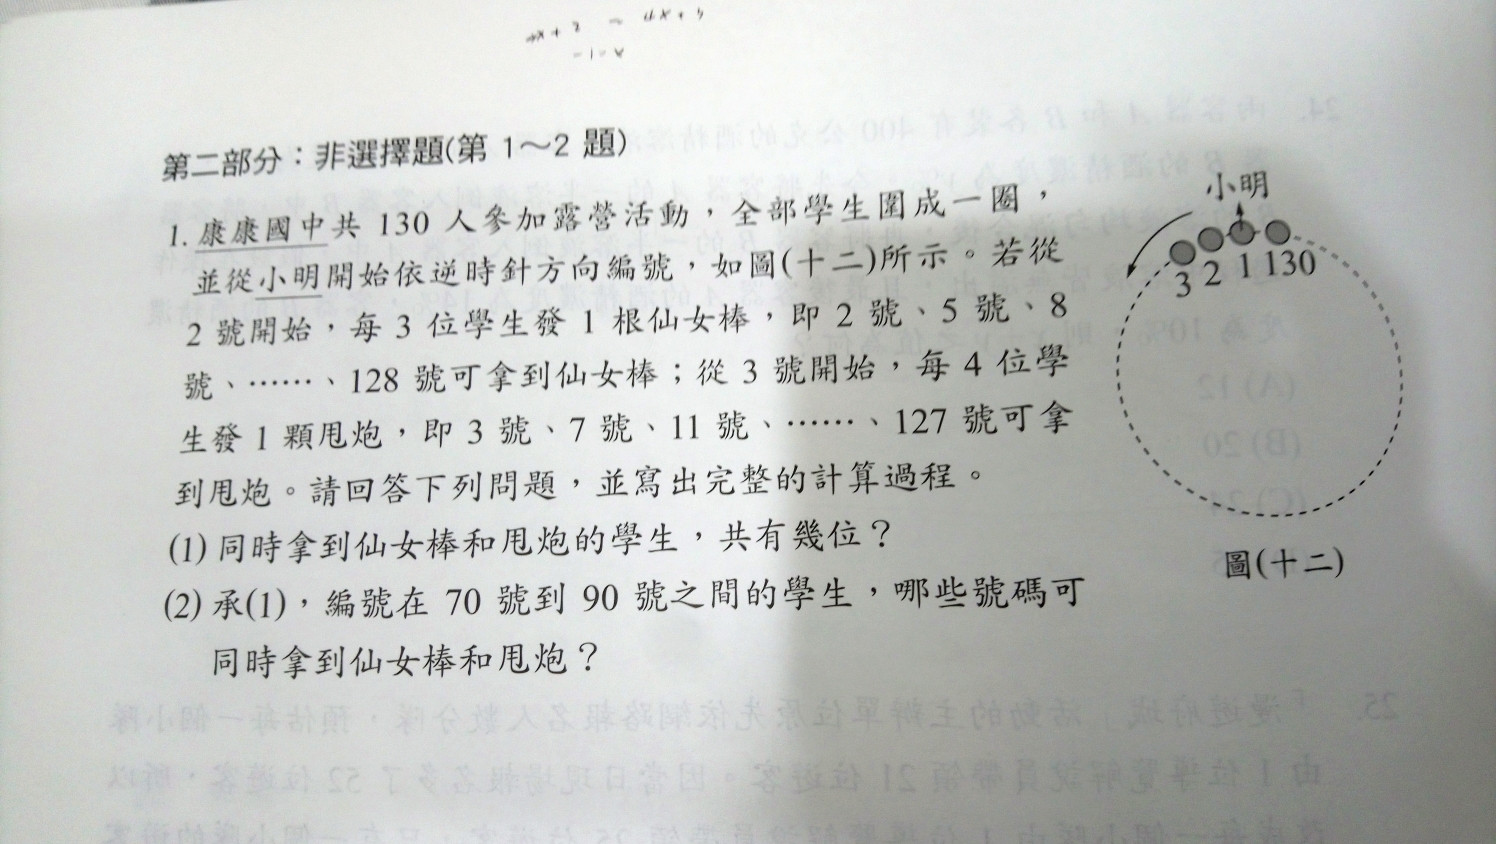 第二部分：非選擇題(第 1～2 題)
1. 康康國中共 130 人參加露營活動，全部學生圍成一圈，
並從小明開始依逆時針方向編號，如圖(十二)所示。若從
2 號開始，每 3 位學生發 1 根仙女棒，即 2 號、5 號、8
號、……、128 號可拿到仙女棒；從 3 號開始，每 4 位學
生發 1 顆甩炮，即 3 號、7 號、11 號、……、127 號可拿
到甩炮。請回答下列問題，並寫出完整的計算過程。
(1) 同時拿到仙女棒和甩炮的學生，共有幾位？
(2) 承(1)，編號在 70 號到 90 號之間的學生，哪些號碼可
同時拿到仙女棒和甩炮？
小明
3 2 1 130
圖(十二)